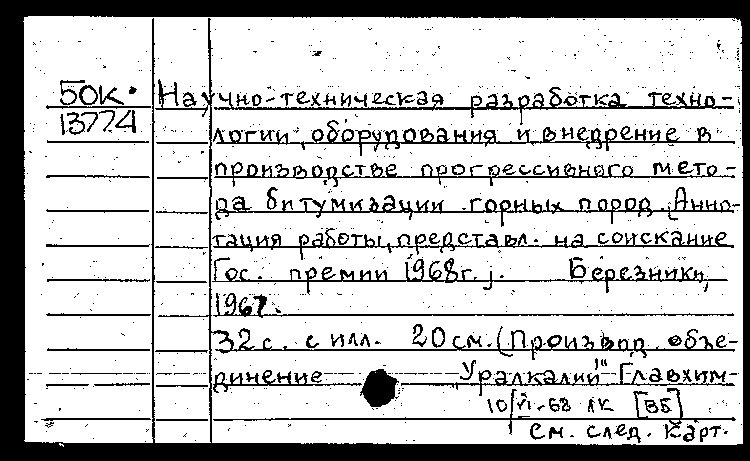 50к. Научно-техническая разработка техно-
13774 логии, оборудования и внедрение в
производстве прогрессивного мето-
да битумизации горных пород. [Анно-
тация работы, представл. на соискание
Гос. премии 1968г.]. Березники,
1967.
32с. с илл. 20см. (Производ. объе-
динение "Уралкалий" Главхим-
10/VI-68 ЛК [ВБ]
См. след. карт.